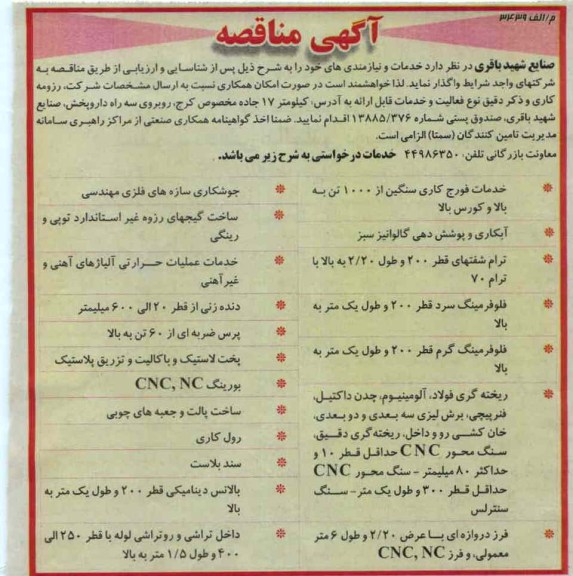 م/الف ۳۲۴۳۹
آگهی مناقصه
صنایع شهید باقری در نظر دارد خدمات و نیازمندی های خود را به شرح ذیل پس از شناسایی و ارزیابی از طریق مناقصه به
شرکتهای واجد شرایط واگذار نماید. لذا خواهشمند است در صورت امکان همکاری نسبت به ارسال مشخصات شرکت، رزومه
کاری و ذکر دقیق نوع فعالیت و خدمات قابل ارائه به آدرس: کیلومتر ۱۷ جاده مخصوص کرج، روبروی سه راه داروپخش، صنایع
شهید باقری، صندوق پستی شماره ۱۳۸۸۵/۳۷۶ اقدام نمایید. ضمنا اخذ گواهینامه همکاری صنعتی از مراکز راهبری سامانه
مدیریت تامین کنندگان (سمتا) الزامی است.
معاونت بازرگانی تلفن: ۴۴۹۸۶۳۵۰ خدمات درخواستی به شرح زیر می باشد.
خدمات فورج کاری سنگین از ۱۰۰۰ تن به
بالا و کورس بالا
آبکاری و پوشش دهی گالوانیز سبز
ترام شفتهای قطر ۲۰۰ و طول ۲/۲۰ به بالا با
ترام ۷۰
فلوفرمینگ سرد قطر ۲۰۰ و طول یک متر به
بالا
فلوفرمینگ گرم قطر ۲۰۰ و طول یک متر به
بالا
ریخته گری فولاد، آلومینیوم، چدن داکتیل،
فنرپیچی، برش لیزی سه بعدی و دو بعدی،
خان کشی رو و داخل، ریخته گری دقیق،
سنگ محور CNC حداقل قطر ۱۰ و
حداکثر ۸۰ میلیمتر - سنگ محور CNC
حداقل قطر ۳۰۰ و طول یک متر - سنگ
سنترلس
فرز دروازه ای با عرض ۲/۲۰ و طول ۶ متر
معمولی، و فرز CNC, NC
جوشکاری سازه های فلزی مهندسی
ساخت گیجهای رزوه غیر استاندارد توپی و
رینگی
خدمات عملیات حرارتی آلیاژهای آهنی و
غیر آهنی
دنده زنی از قطر ۲۰ الی ۶۰۰ میلیمتر
پرس ضربه ای از ۶۰ تن به بالا
پخت لاستیک و باکالیت و تزریق پلاستیک
بورینگ CNC, NC
ساخت پالت و جعبه های چوبی
رول کاری
سند بلاست
بالانس دینامیکی قطر ۲۰۰ و طول یک متر به
بالا
داخل تراشی و روتراشی لوله با قطر ۲۵۰ الی
۴۰۰ و طول ۱/۵ متر به بالا